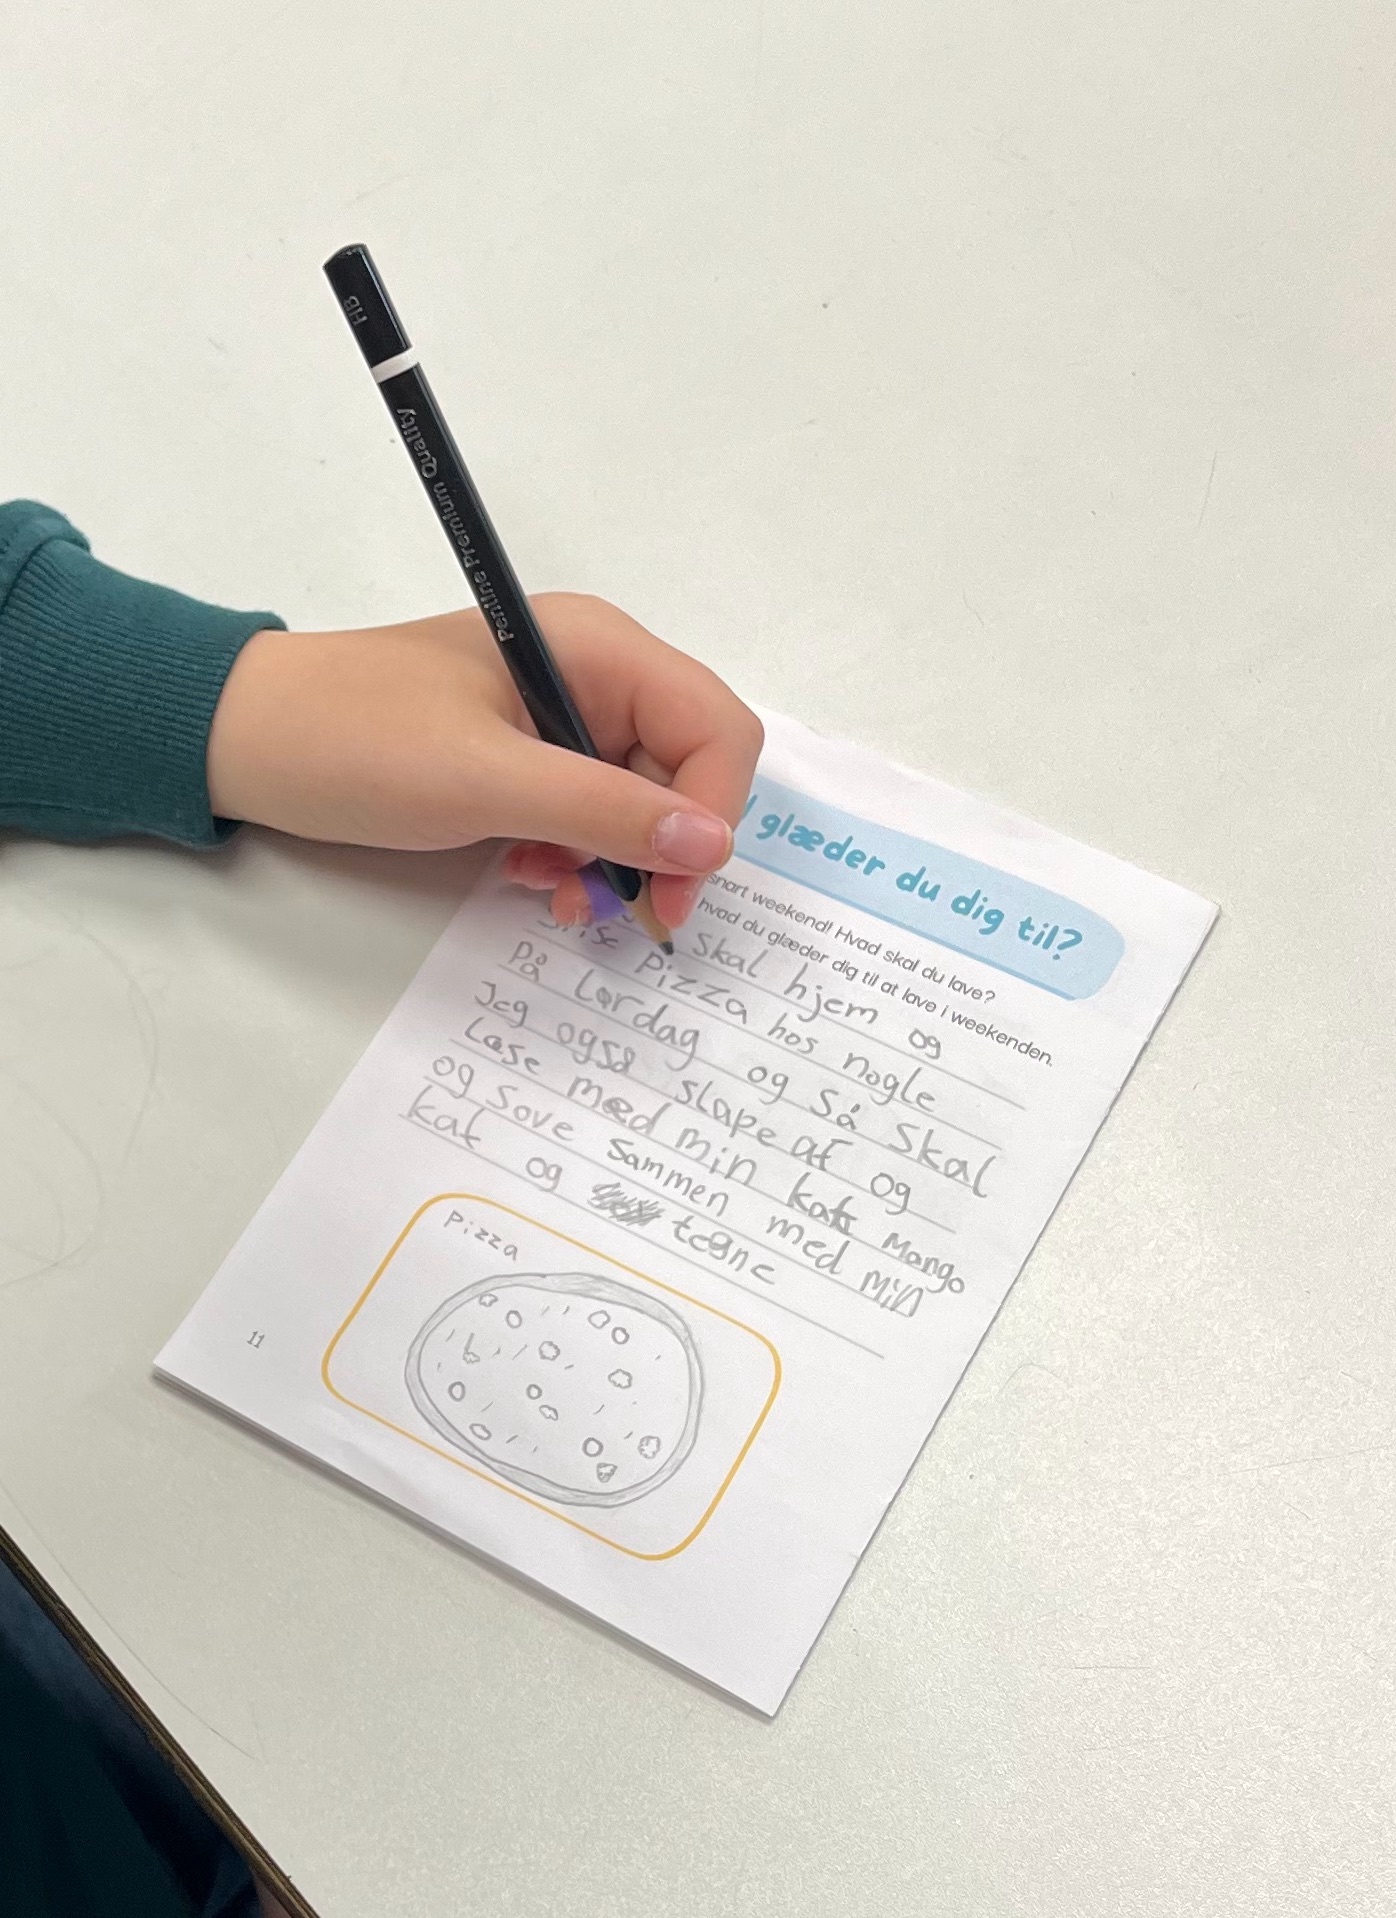 HB
Pentine Premium Quality
glæder du dig til?
snart weekend! Hvad skal du lave?
hvad du glæder dig til at lave i weekenden.
skal hjem og
spise pizza hos nogle
på Lørdag og så skal
Jeg også slape af og
Læse med min kat Mango
og sove sammen med min
kat og tegne
Pizza
11